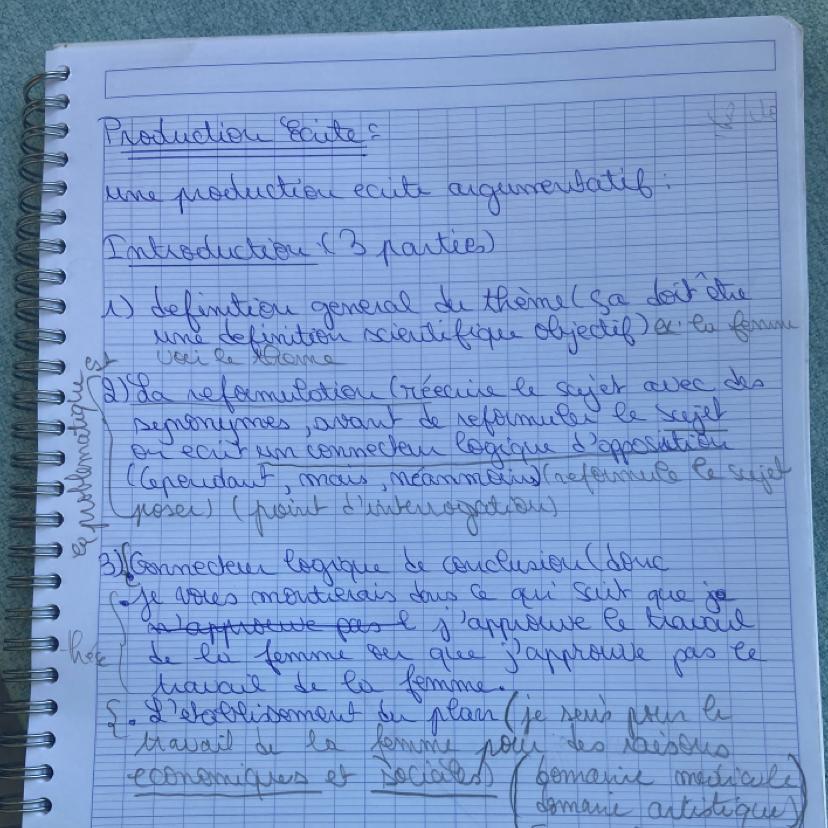 Production écrite :
une production ecrite argumentatif :
Introduction (3 parties)
1) definition general du thème (sa doit être
une definition scientifique objectif) ex: la femme
voici le theme
2) La reformulation (réecrire le sujet avec des
synonymes, avant de reformuler le sujet
on ecrit un connecteur logique d'opposition
(Cependant, mais, néanmoins) (reformule le sujet
poser) (point d'interrogation)
la problématique
3) Connecteur logique de conclusion (donc
. je vous montrerais dans ce qui suit que je
n'approuve pas l j'approuve le travail
de la femme ou que j'approuve pas le
travail de la femme.
. L'etablissement du plan (je suis pour le
travail de la femme pour des raisons
economiques et sociales) (domaine médicale
domaine artistique)